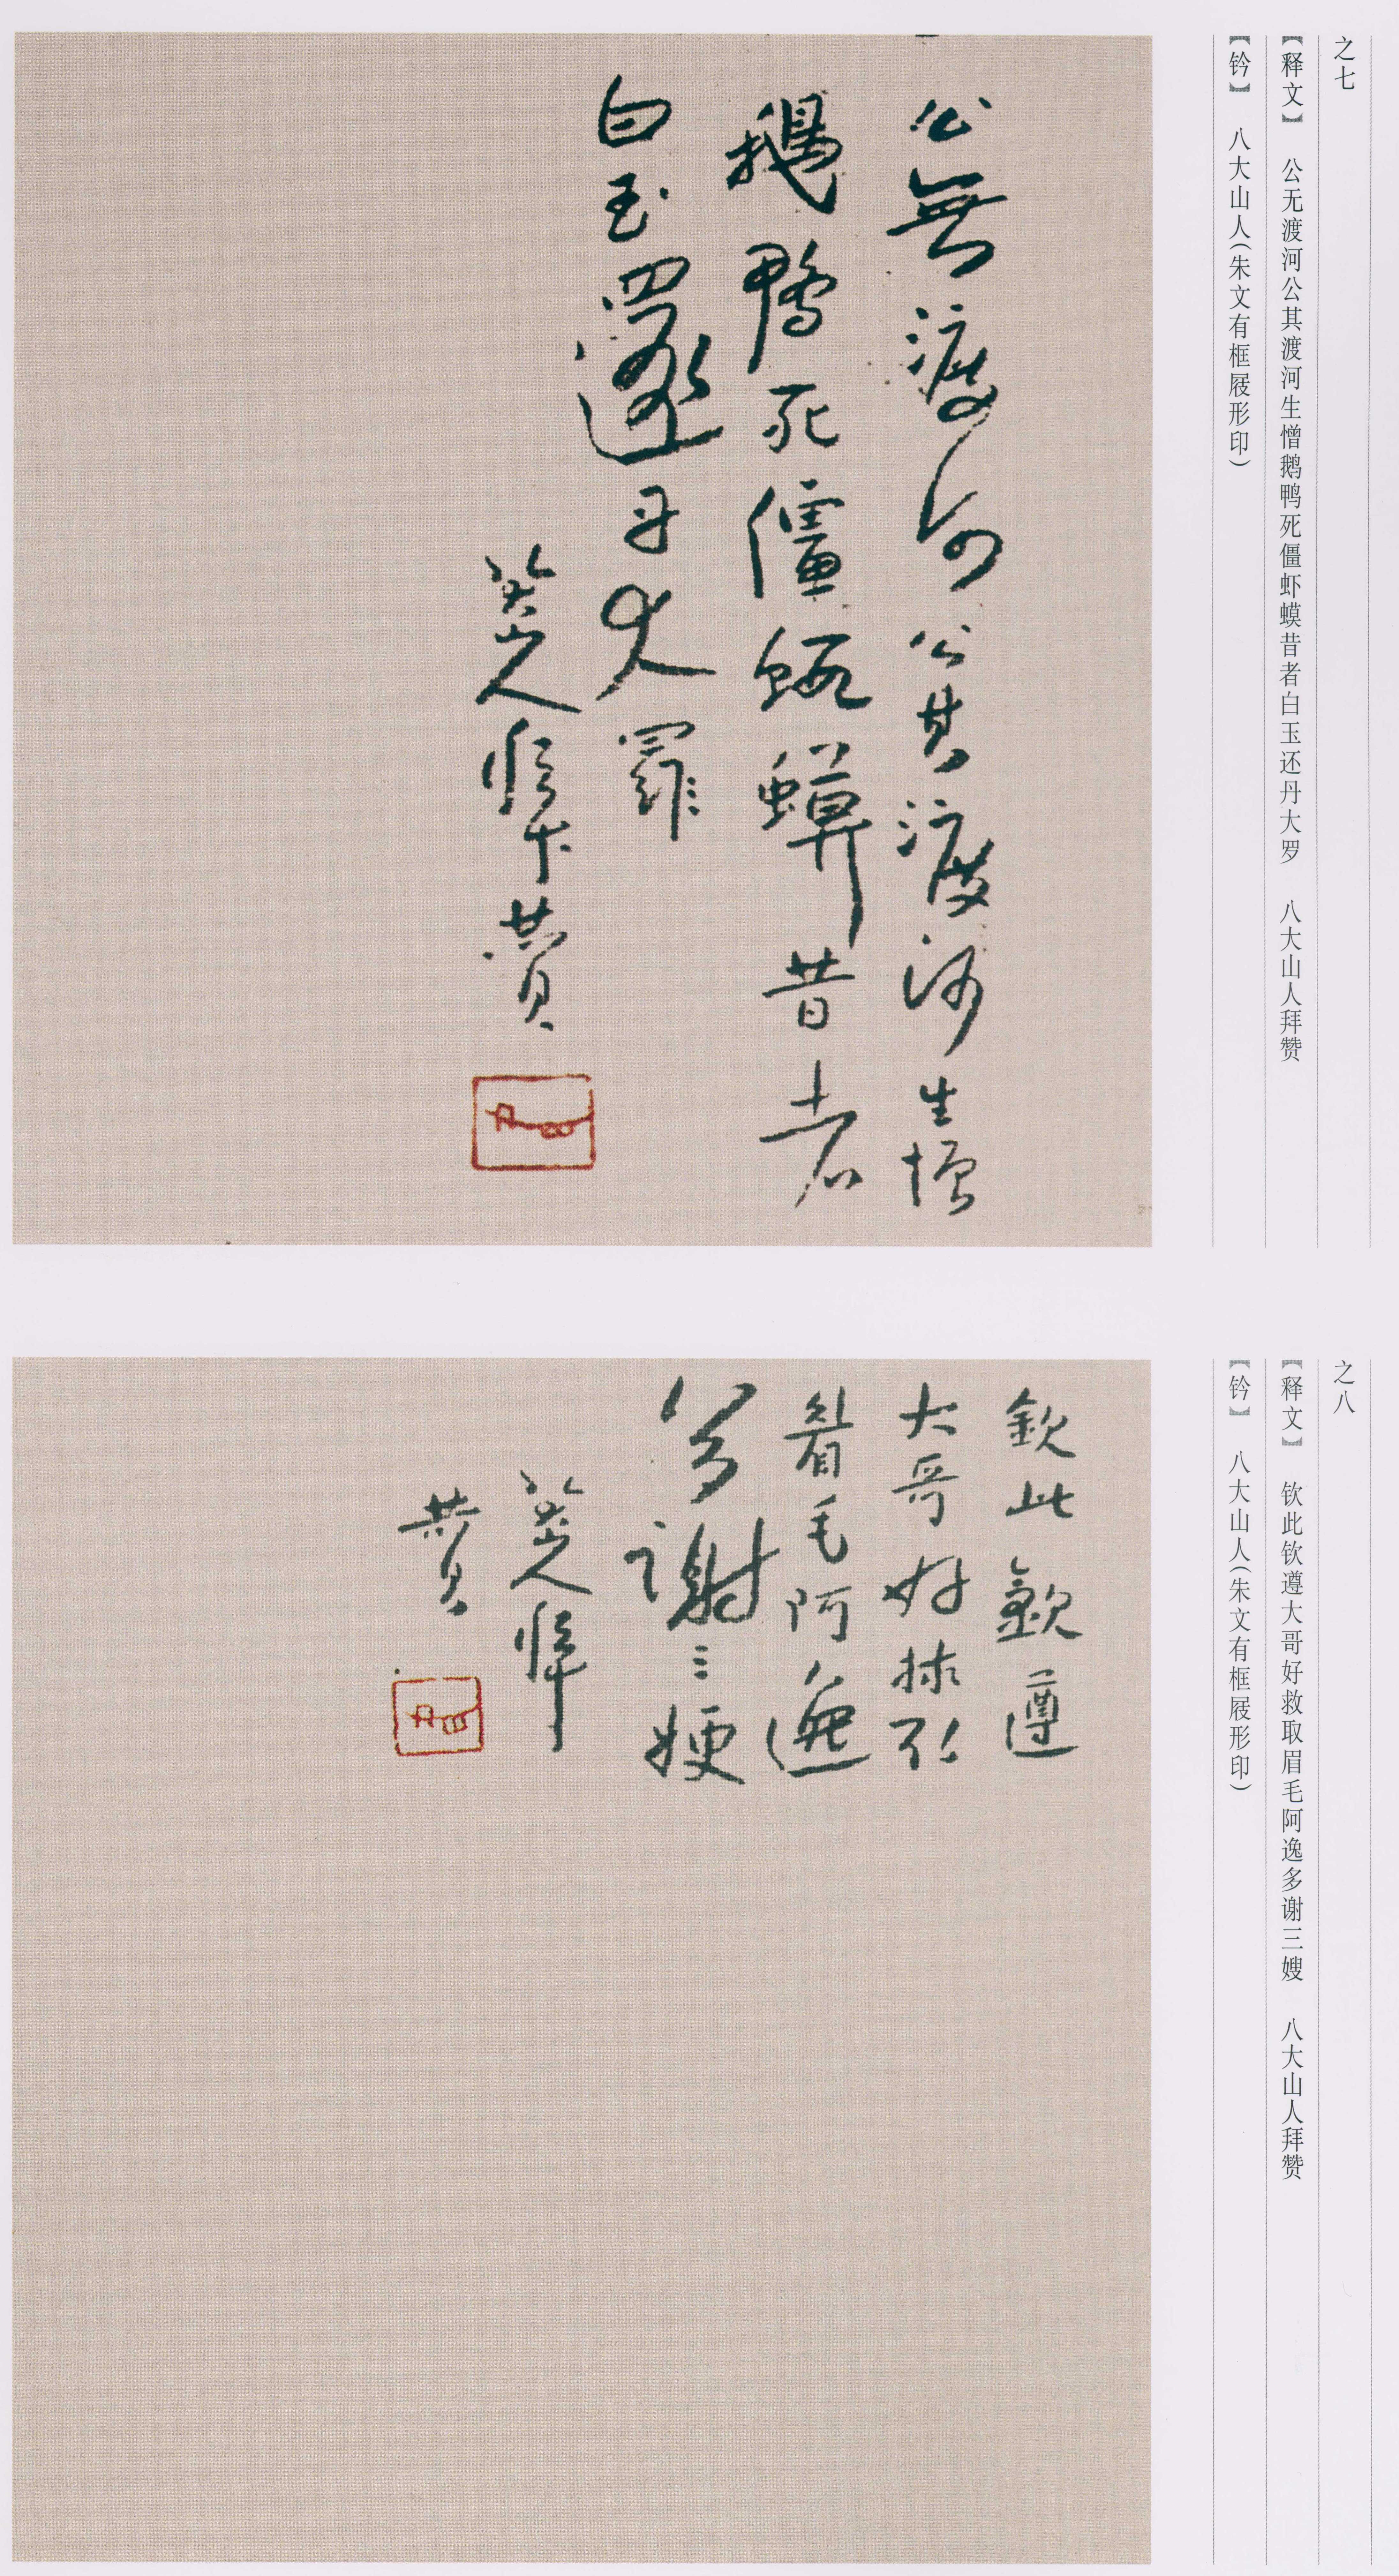 之七
【释文】 公无渡河公其渡河生憎鹅鸭死僵虾蟆昔者白玉还丹大罗 八大山人拜赞
【钤】 八大山人(朱文有框屐形印)
公無渡河公其渡河生憎
鵝鴨死僵蝦蟆昔者
白玉還丹大羅
八大山人拜贊
之八
【释文】 钦此钦遵大哥好救取眉毛阿逸多谢三嫂 八大山人拜赞
【钤】 八大山人(朱文有框屐形印)
欽此欽遵
大哥好救取
眉毛阿逸
多謝三嫂
八大山人拜
贊